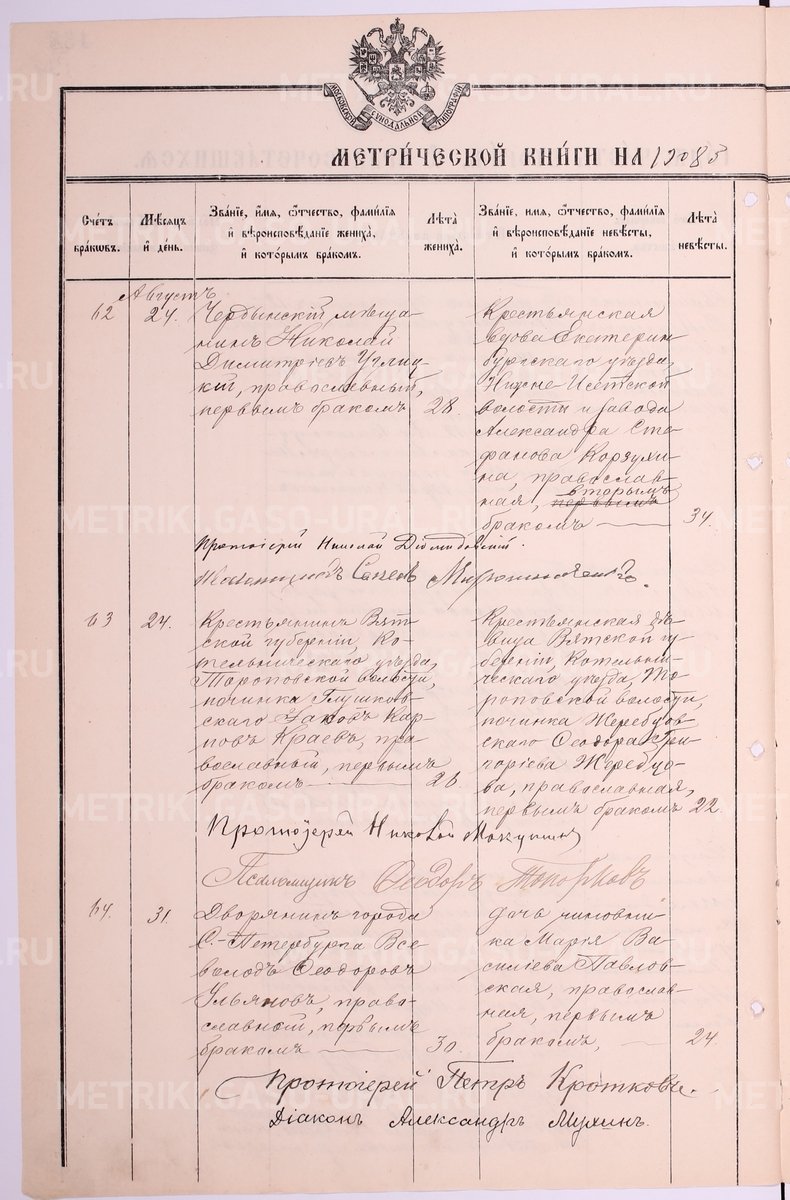 МОСКОВСКОЙ СѴНОДАЛЬНОЙ ТИПОГРАФІИ
МЕТРИ́ЧЕСКОЙ КНИ́ГИ НА
Счéтъ бра́ковъ.
Мѣ́сяцъ и҆ де́нь.
Зва́нїе, и҆́мя, ѻ҆́тчество, фами́лїя и҆ вѣроисповѣ́данїе жениха̀, и҆ кото́рымъ бра́комъ.
Лѣта̀ жениха̀.
Зва́нїе, и҆́мя, ѻ҆́тчество, фами́лїя и҆ вѣроисповѣ́данїе невѣ́сты, и҆ кото́рымъ бра́комъ.
Лѣта̀ невѣ́сты.
Августъ
62
24.
Чердынскій мѣща-
нинъ Николай
Димитріевъ Углиц-
кій, православный,
первымъ бракомъ
28.
Крестьянская
вдова Екатерин-
бургскаго уѣзда,
Нижне-Исетской
волости и завода
Александра Сте-
фанова Корзухи-
на, православ-
ная, первымъ
вторымъ
бракомъ
34.
Протоіерей Николай Діомидовскій.
63
24.
Крестьянинъ Вят-
ской губерніи, Ко-
тельническаго уѣзда,
Тороповской волости,
починка Глушков-
скаго Іаковъ Кар-
повъ Краевъ, пра-
вославный, первымъ
бракомъ
Крестьянская дѣ-
вица Вятской гу-
берніи, Котельни-
ческаго уѣзда, То-
роповской волости,
починка Жеребцов-
скаго Ѳеодора Гри-
горіева Жеребцо-
ва, православная,
первымъ бракомъ
22.
Протоіерей Николай
Псаломщикъ Ѳеодоръ Топорковъ
64.
31.
Дворянинъ города
С.-Петербурга Все-
володъ Ѳеодоровъ
Ульяновъ, право-
славный, первымъ
бракомъ
30.
Дочь чиновни-
ка Марія Ва-
силіева Павлов-
ская, православ-
ная, первымъ
бракомъ,
24.
Протоіерей Петръ Кротковъ.
Діаконъ Александръ Мухинъ.
METRIKI.GASO-URAL.RU